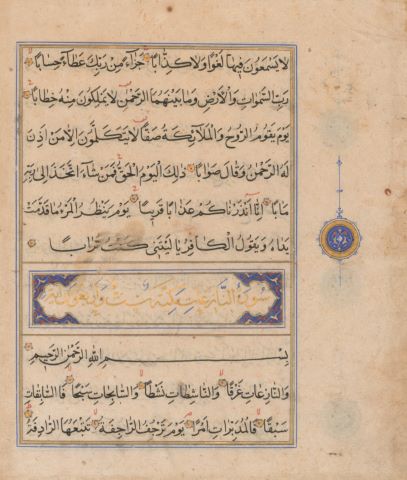 لَا يَسْمَعُونَ فِيهَا لَغْوًا وَلَا كِذَّابًا جَزَاءً مِنْ رَبِّكَ عَطَاءً حِسَابًا
رَبِّ السَّمٰوَاتِ وَالْأَرْضِ وَمَا بَيْنَهُمَا الرَّحْمٰنِ لَا يَمْلِكُونَ مِنْهُ خِطَابًا
يَوْمَ يَقُومُ الرُّوحُ وَالْمَلَائِكَةُ صَفًّا لَا يَتَكَلَّمُونَ إِلَّا مَنْ أَذِنَ
لَهُ الرَّحْمٰنُ وَقَالَ صَوَابًا ذٰلِكَ الْيَوْمُ الْحَقُّ فَمَنْ شَاءَ اتَّخَذَ إِلَى رَبِّهِ
مَآبًا إِنَّا أَنْذَرْنَاكُمْ عَذَابًا قَرِيبًا يَوْمَ يَنْظُرُ الْمَرْءُ مَا قَدَّمَتْ
يَدَاهُ وَيَقُولُ الْكَافِرُ يَا لَيْتَنِي كُنْتُ تُرَابًا
سورة النازعات مكية
بِسْمِ اللهِ الرَّحْمٰنِ الرَّحِيمِ
وَالنَّازِعَاتِ غَرْقًا وَالنَّاشِطَاتِ نَشْطًا وَالسَّابِحَاتِ سَبْحًا فَالسَّابِقَاتِ
سَبْقًا فَالْمُدَبِّرَاتِ أَمْرًا يَوْمَ تَرْجُفُ الرَّاجِفَةُ تَتْبَعُهَا الرَّادِفَةُ